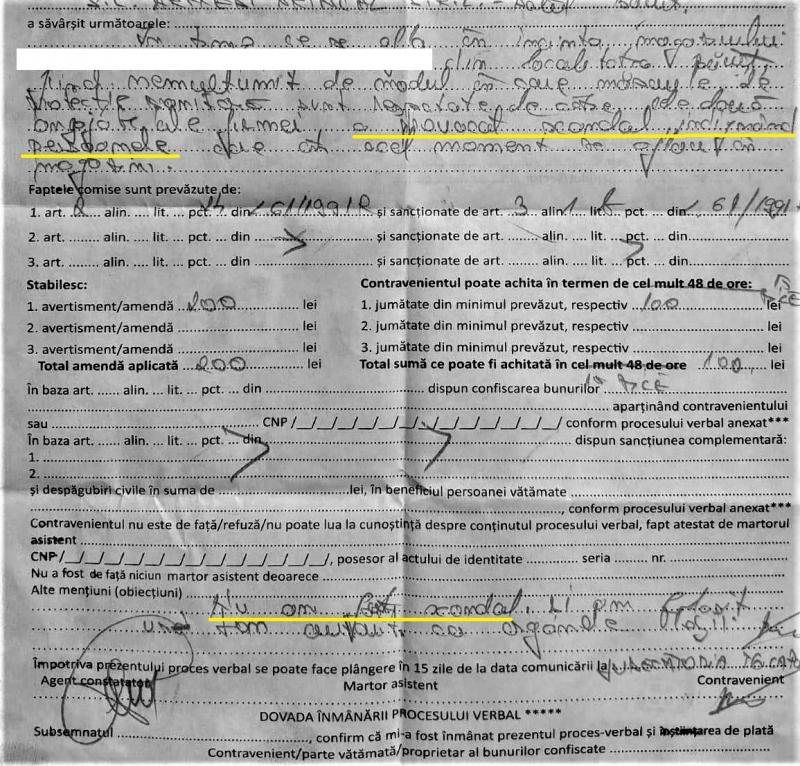 a săvârșit următoarele:
În timp ce se afla în incinta magazinului
din localitatea
fiind nemulțumit de modul în care măsurile de
protecție sanitară sunt respectate de către cele două
angajate ale firmei a provocat scandal, indignând
persoanele care în acel moment se aflau în
magazin.
Faptele comise sunt prevăzute de:
1. art. 2 alin. ... lit. ... pct. din 61/1991R și sancționate de art. 3 alin 1 lit. pct. ... din 61/1991
2. art. ........ alin. .... lit. ... pct. ... din și sancționate de art. ........ alin. .... lit. .... pct. ... din
3. art. ........ alin. .... lit. ... pct. ... din și sancționate de art. ........ alin. .... lit. .... pct. ... din
Stabilesc: Contravenientul poate achita în termen de cel mult 48 de ore:
1. avertisment/amendă 200 lei 1. jumătate din minimul prevăzut, respectiv 100 lei
2. avertisment/amendă ........ lei 2. jumătate din minimul prevăzut, respectiv ........ lei
3. avertisment/amendă ........ lei 3. jumătate din minimul prevăzut, respectiv ........ lei
Total amendă aplicată 200 lei Total sumă ce poate fi achitată în cel mult 48 de ore 100 lei
În baza art. ...... alin. ... lit. ... pct. ... din ........ dispun confiscarea bunurilor
aparținând contravenientului
sau ........ CNP /__/__/__/__/__/__/__/__/__/__/__/__/__/ conform procesului verbal anexat***
În baza art. ...... alin. ... lit. ... pct. din ........ dispun sancțiunea complementară:
1.
2.
și despăgubiri civile în suma de ........ lei, în beneficiul persoanei vătămate
, conform procesului verbal anexat***
Contravenientul nu este de față/refuză/nu poate lua la cunoștință despre conținutul procesului verbal, fapt atestat de martorul
asistent
CNP/__/__/__/__/__/__/__/__/__/__/__/__/__/, posesor al actului de identitate ........ seria ........ nr. ........
Nu a fost de față niciun martor asistent deoarece
Alte mențiuni (obiecțiuni)
Nu am făcut scandal. folosit
un ton
Împotriva prezentului proces verbal se poate face plângere în 15 zile de la data comunicării la
Agent constatator Martor asistent Contravenient
DOVADA ÎNMÂNĂRII PROCESULUI VERBAL *****
Subsemnatul ........, confirm că mi-a fost înmânat prezentul proces-verbal și înștiințarea de plată
Contravenient/parte vătămată/proprietar al bunurilor confiscate